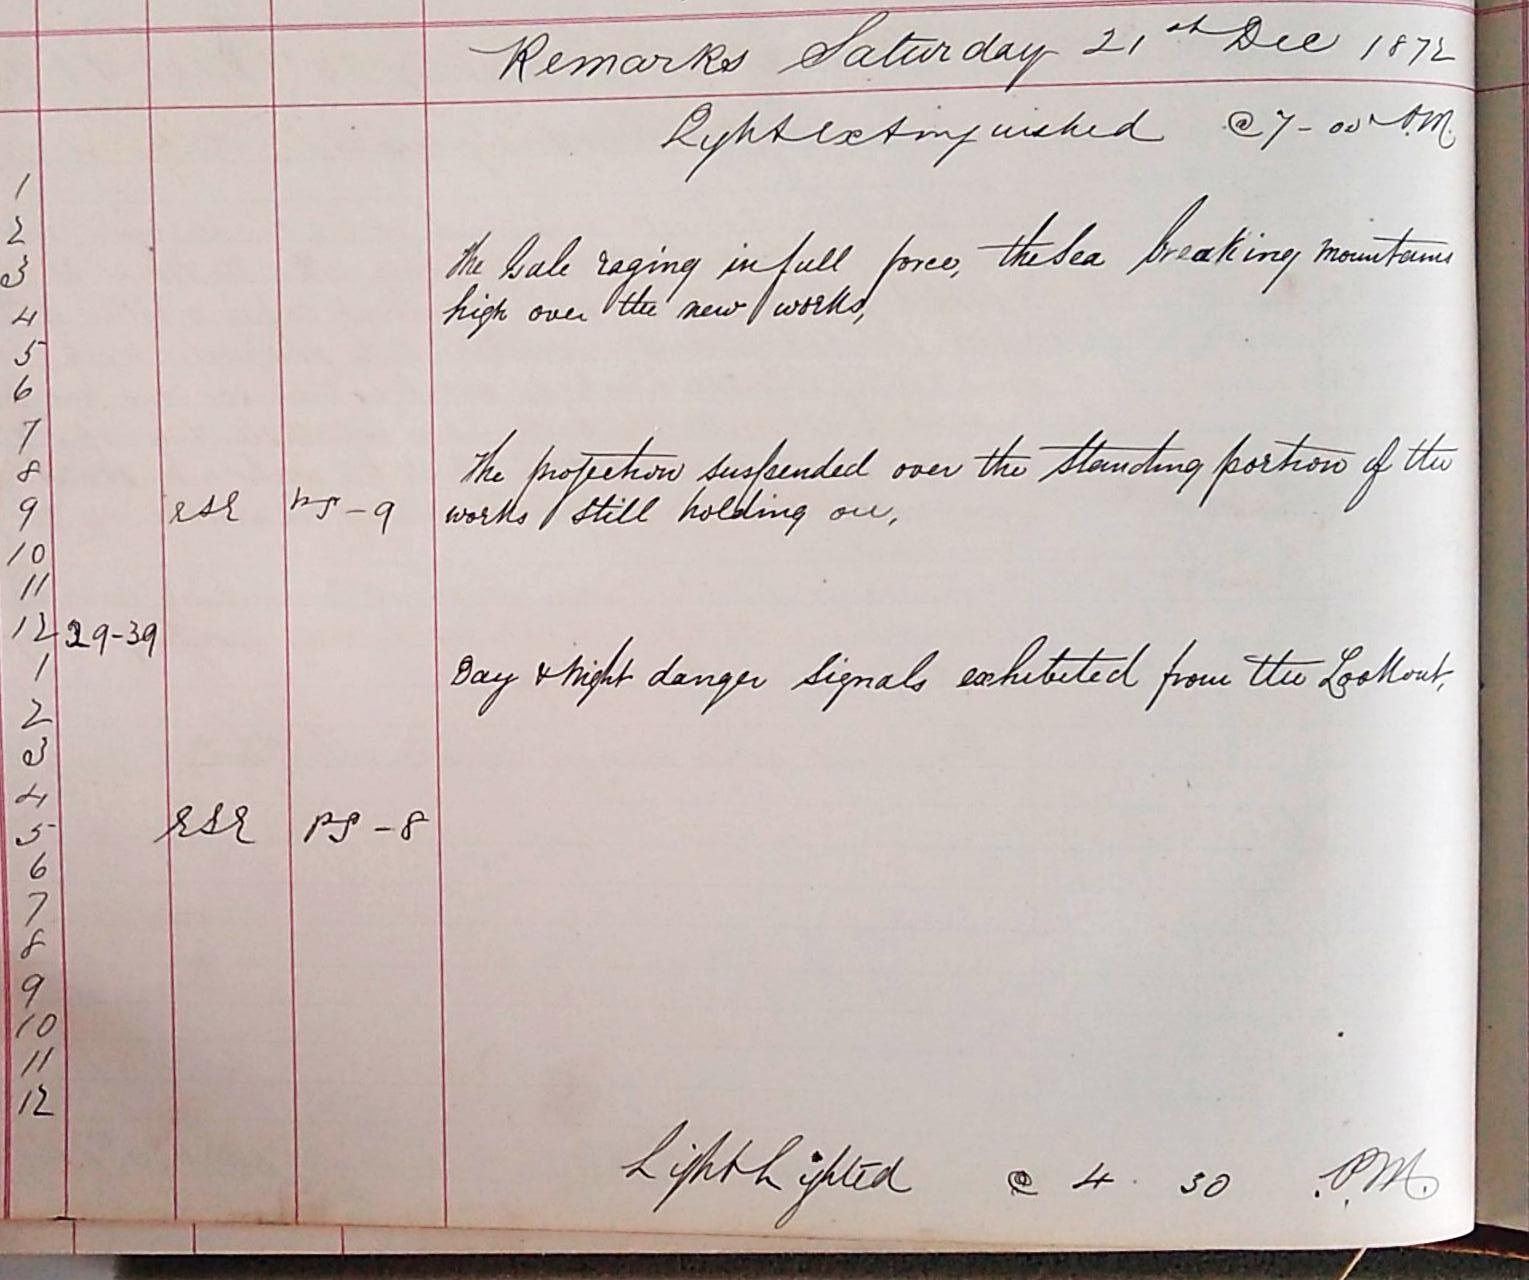 Remarks Saturday 21st Dec 1872
Light extinguished @ 7-00 A.M.
1
2
The Gale raging in full force, the Sea breaking mountains
3
high over the new works,
4
5
6
7
8
The projection suspended over the standing portion of the
9 ESE PS-9 works still holding on,
10
11
12 29-39
1
Day & Night danger signals exhibited from the Lookout,
2
3
4
5 ESE PS-8
6
7
8
9
10
11
12
Light Lighted @ 4. 30 P.M.